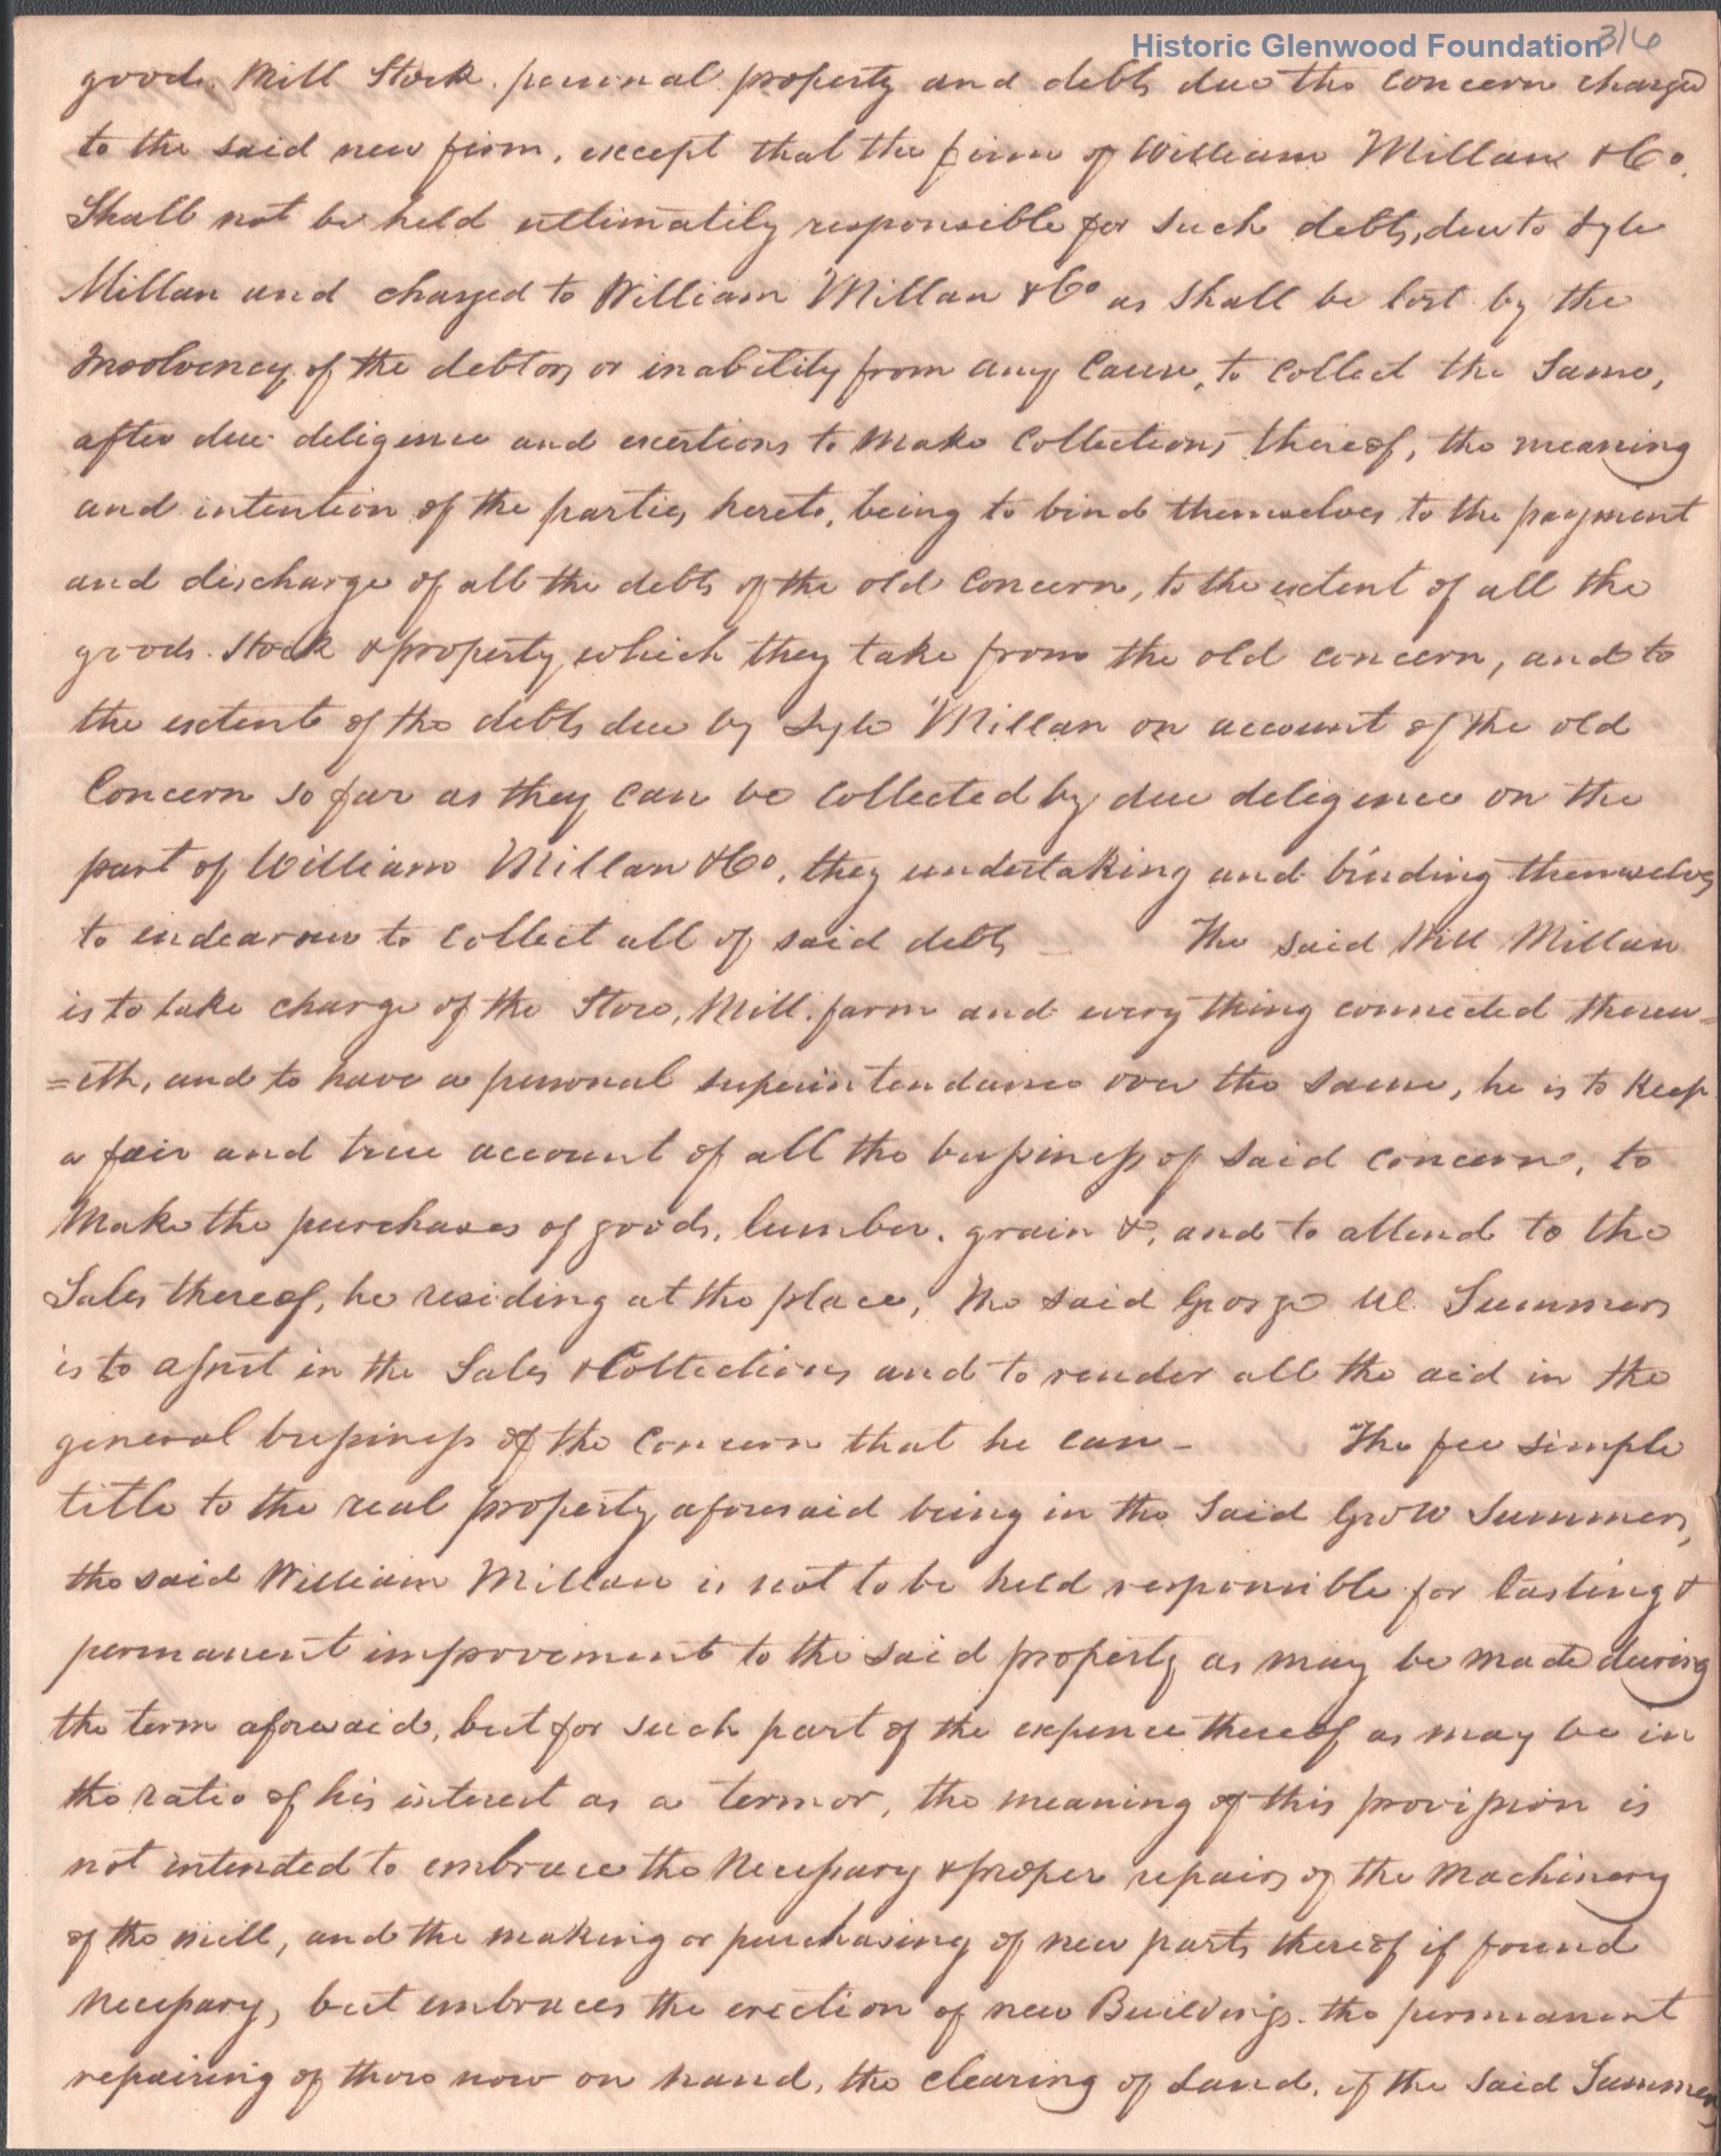 Historic Glenwood Foundation 3/6
goods. Mill Stock. personal property and debts due the concern charged
to the said new firm, except that the firm of William Millan & Co.
Shall not be held ultimatily responsible for such debts, due to Lyle
Millan and charged to William Millan & Co as Shall be lost by the
insolvency of the debtors or inability from any Cause, to Collect the Same,
after due diligence and exertions to make Collections thereof, the meaning
and intention of the parties hereto, being to bind themselves to the payment
and discharge of all the debts of the old Concern, to the extent of all the
goods. Stock & property which they take from the old concern, and to
the extent of the debts due by Lyle Millan on account of the old
Concern so far as they can be Collected by due deligence on the
part of William Millan & Co, they undertaking and binding themselves
to endeavour to Collect all of said debts – The said Will Millan
is to take charge of the Store, Mill. farm and every thing connected therew=
=ith, and to have a personal superintendance over the same, he is to Keep
a fair and true account of all the business of said concern, to
Make the purchases of goods, lumber. grain &c, and to attend to the
Sales thereof, he residing at the place, The said George W. Summers
is to assist in the Sales & Collections and to render all the aid in the
general business of the Concern that he can – The fee simple
title to the real property aforesaid being in the Said Geo W Summers,
the said William Millan is not to be held responsible for lasting &
permanent improvement to the said property as may be made during
the term aforesaid, but for such part of the expence thereof as may be in
the ratio of his interest as a termor, the meaning of this provision is
not intended to embrace the Necessary & proper repairs of the Machinery
of the mill, and the making or purchasing of new parts thereof if found
necessary, but embraces the erection of new Buildings. the permanent
repairing of those now on hand, the clearing of Land, if the Said Summers